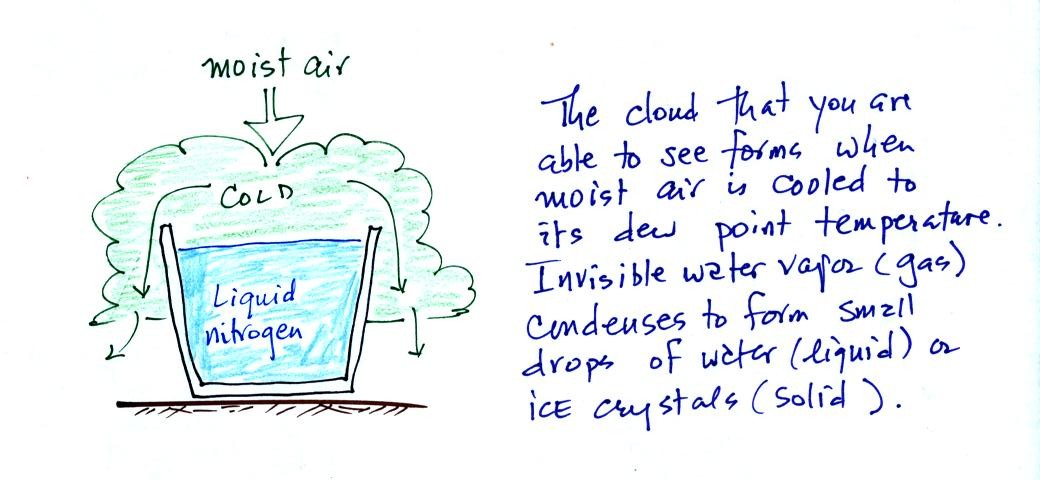 moist air
COLD
Liquid
nitrogen
The cloud that you are
able to see forms when
moist air is cooled to
its dew point temperature.
Invisible water vapor (gas)
condenses to form small
drops of water (liquid) or
ICE crystals (solid).